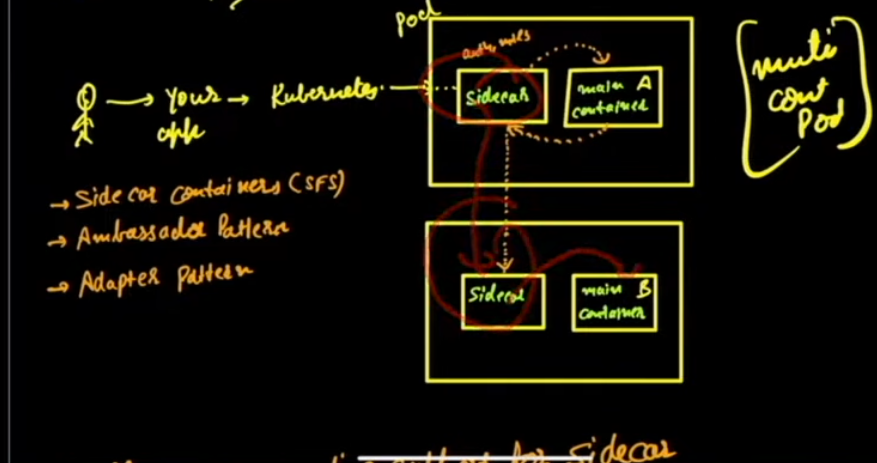 Pod
auth, mtls
Your
app
Kubernetes
Sidecar
main A
container
multi
cont
Pod
→ Sidecar containers (SFS)
→ Ambassador Pattern
→ Adapter Pattern
Sidecar
main B
container
for sidecar